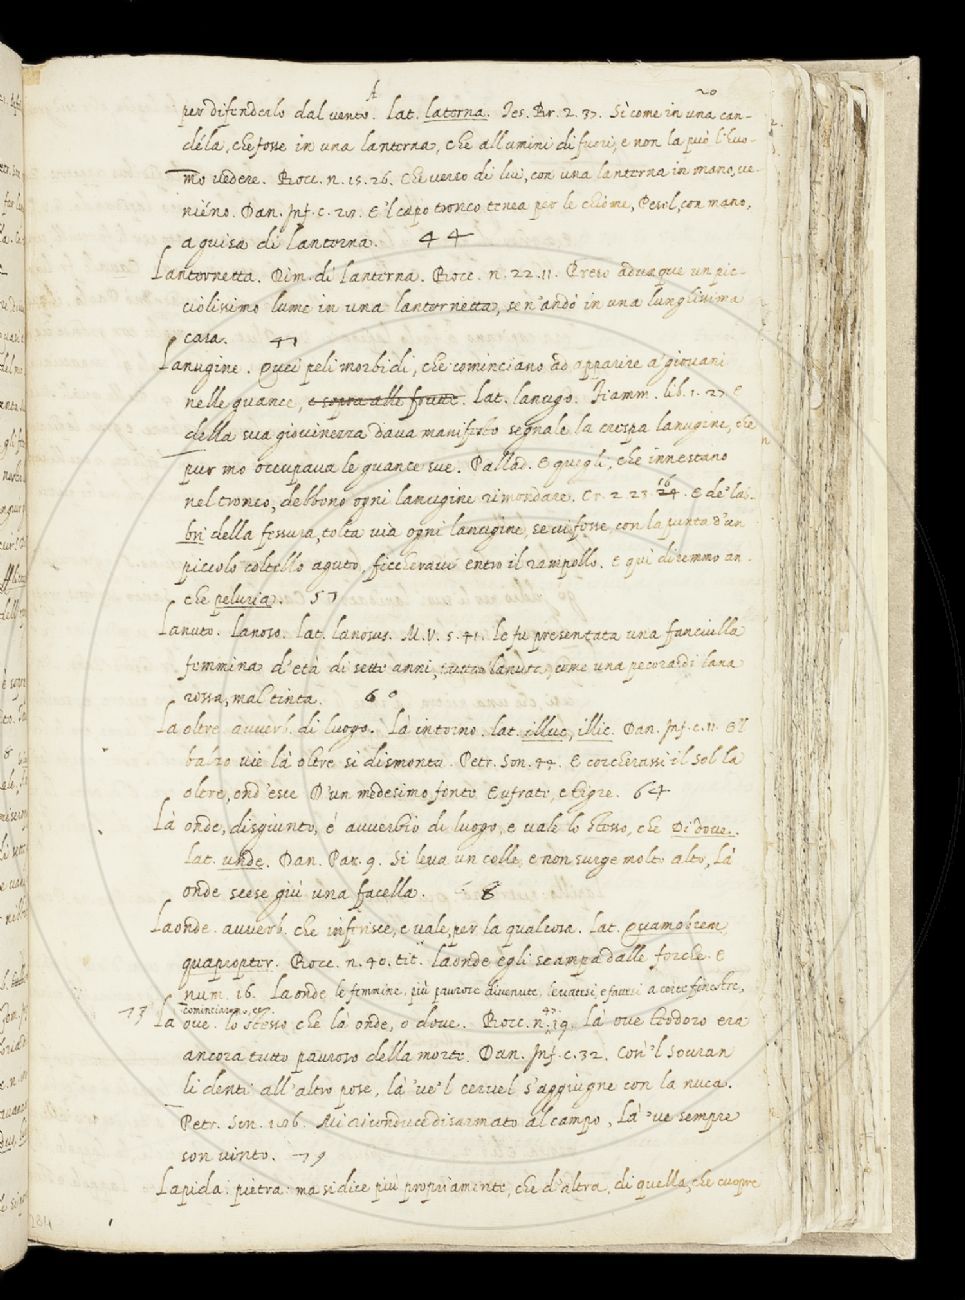 per difenderlo dal vento. lat. laterna. Tes. Br. 2. 37. Sì come in una can-
déla, che fosse in una lanterna, che allumini di fuori, e non la può l'huo-
mo vedere. Bocc. n. 15. 26. Che verso di lui, con una lanterna in mano, ve-
niéno. Dan. Inf. c. 28. E 'l capo tronco tenea per le chiome, Pesol, con mano,
a guisa di lanterna. 44
Lanternetta. Dim. di lanterna. Bocc. n. 22. 11. Preso adunque un pic-
ciolissimo lume in una lanternetta, se n'andò in una lunghissima
casa. 47
Lanugine. Quei peli morbidi, che cominciano ad apparire a' giovani
nelle guance, e sopra alle lat. lanugo. Fiamm. lib. 1. 27 E
della sua giovinezza dava manifesto segnale la crespa lanugine, che
pur mo occupava le guance sue. Pallad. E quegli, che innestano
nel tronco, debbono ogni lanugine rimondare. Cr. 2. 23. 16 24. E de' la-
bri della fessura, tolta via ogni lanugine, se vi fosse, con la punta d'un
piccolo coltello aguto, ficcheravi entro il rampollo. E quì diremmo an-
che peluria. 57
Lanuto. Lanoso. lat. lanosus. M. V. 5. 41. le fu presentata una fanciulla
femmina d'età di sette anni, tutta lanuta, come una pecora di lana
rossa, mal tinta. 60
La oltre. avverb. di luogo. Là intorno. lat. illuc, illic. Dan. Inf. c. 11. E 'l
balzo vie là oltre si dismonta. Petr. Son. 44. E corcherassi il Sol là
oltre, ond'esce D'un medesimo fonte Eufrate, e Tigre. 64
Là onde, disgiunto, é avverbio di luogo, e vale lo stesso, che Di dove.
lat. unde. Dan. Par. 9. Si leva un colle, e non surge molto alto, Là
onde scese giù una facella. 68
Laonde. avverb. che inferisce, e vale, per la qualcosa. lat. Quamobrem,
quapropter. Bocc. n. 40. tit. laonde egli scampa dalle forche. E
num. 16. Laonde le femmine, più paurose divenute, levatesi, e fattesi a certe finestre,
cominciarono, ec.
73 Là ove. lo stesso che là onde, o dove. Bocc. n. 47. 19. Là ove Teodoro era
ancora tutto pauroso della morte. Dan. Inf. c. 32. Così 'l sovran
li denti all'altro pose, là 've 'l cervel s'aggiugne con la nuca.
Petr. Son. Mi riconduce disarmato al campo, Là 've sempre
son vinto. 79
Lapida: pietra: ma si dice più propriamente, che d'altra, di quella, che cuopre